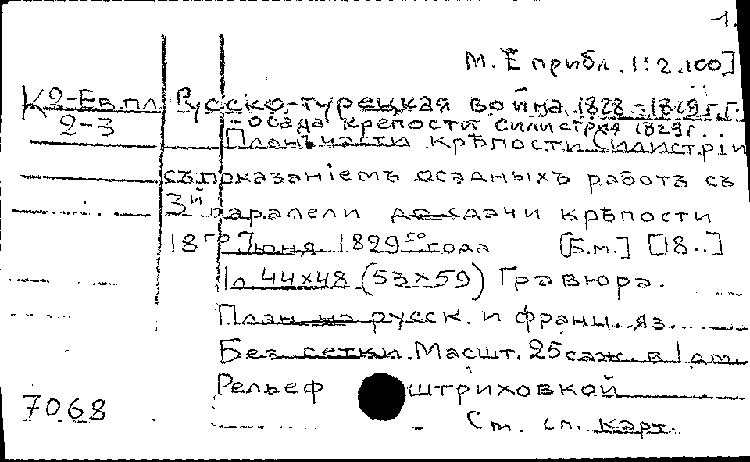 1.
М. [прибл. 1:2.100]
К 2-Ев.пл. Русско-турецкая война 1828-1829 г.г.
2-3 - осада крепости Силистрия 1829 г.
Планъ части крѣпости Силистріи
съ показаніемъ осадныхъ работъ съ
3й паралели до сдачи крѣпости
18го Іюня 1829го года [Б.м.] [18..]
1 л 44х48 (53х59) Гравюра.
План на русск. и франц. яз.
Без сетки. Масшт. 25 саж. в 1 дм.
Рельеф штриховкой
7068 См. сп. карт.